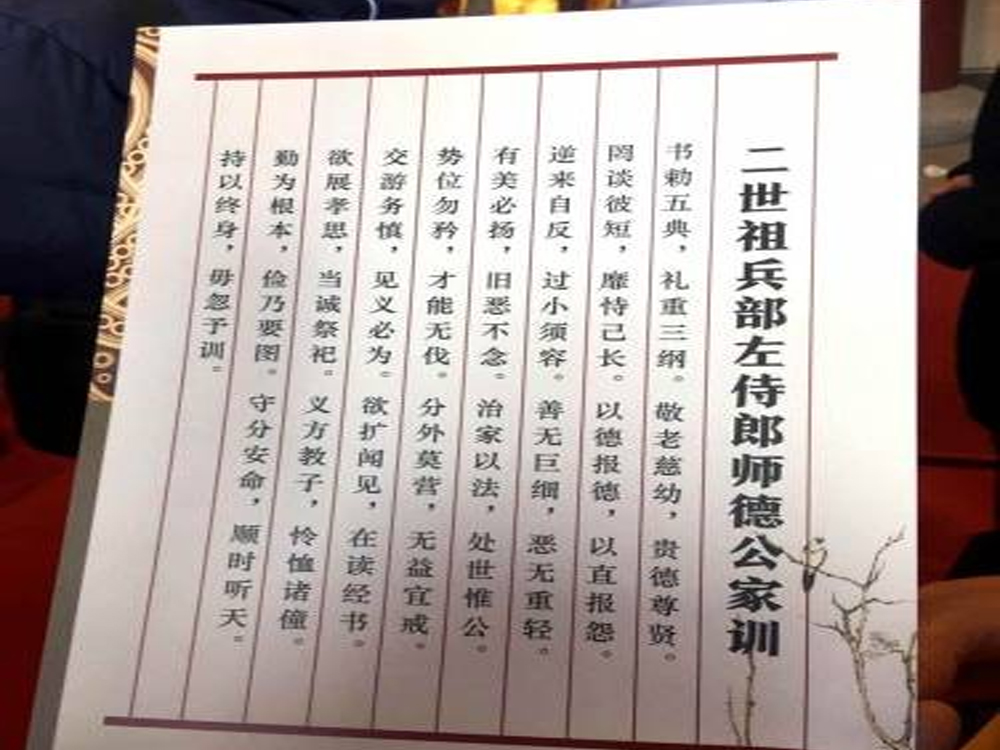 二世祖兵部左侍郎师德公家训
书勅五典，礼重三纲。敬老慈幼，贵德尊贤。
罔谈彼短，靡恃己长。以德报德，以直报怨。
逆来自反，过小须容。善无巨细，恶无重轻。
有美必扬，旧恶不念。治家以法，处世惟公。
势位勿矜，才能无伐。分外莫营，无益宜戒。
交游务慎，见义必为。欲扩闻见，在读经书。
欲展孝思，当诚祭祀。义方教子，怜恤诸僮。
勤为根本，俭乃要图。守分安命，顺时听天。
持以终身，毋忽予训。